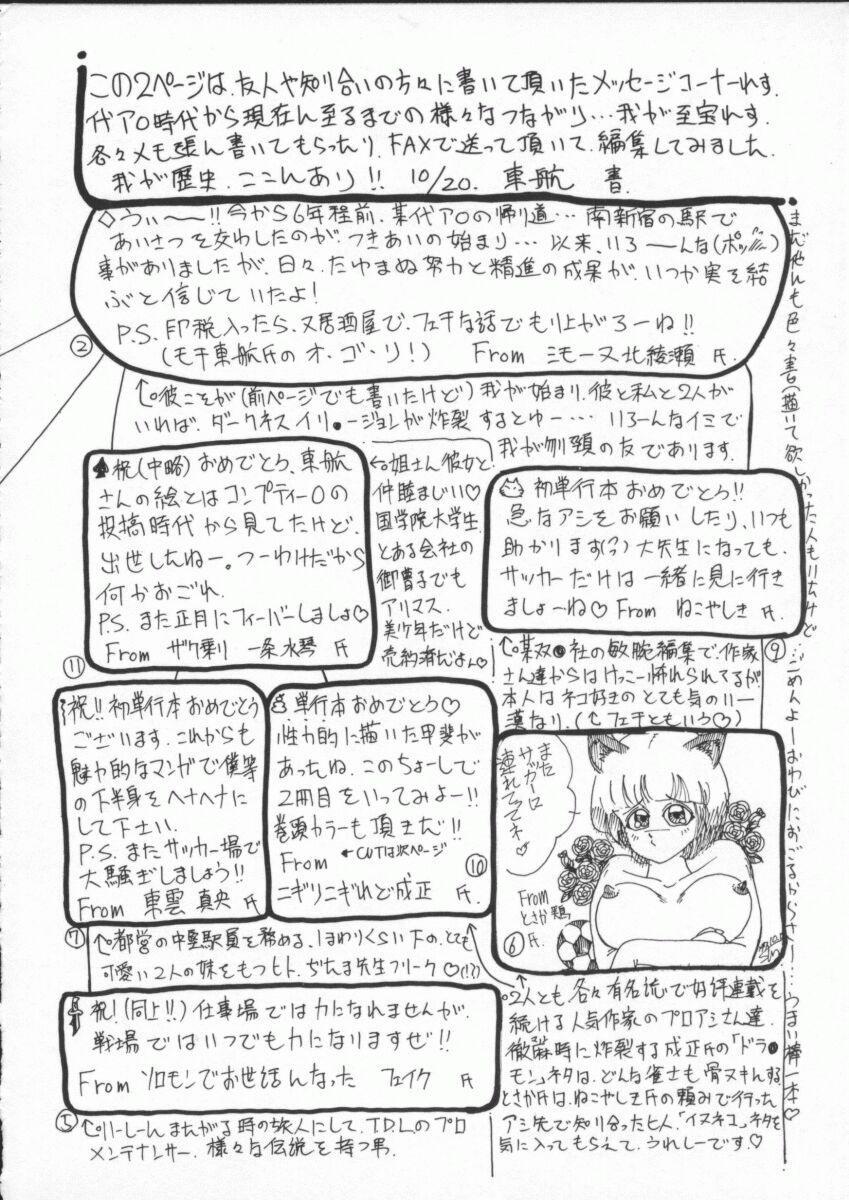 この2ページは、友人や知り合いの方々に書いて頂いたメッセージコーナーれす.
代ア〇時代から現在ん至るまでの様々なつながり…我が至宝れす.
各々メモ張ん書いてもらったり、FAXで送って頂いて、編集してみました.
我が歴史、ここんあり!! 10/20. 車航 書
まだやんも色々書(描)いて欲しかった人もいたけど…ごめんよーおわびにおごるからさー…うまい棒一本♡
◇うぃ〜〜!! 今から6年程前、某代ア〇の帰り道… 南新宿の駅で
あいさつを交わしたのが、つきあいの始まり… 以来、いろ〜〜んな(ポッ)
事がありましたが、日々、たゆまぬ努力と精進の成果が、いつか実を結
ぶと信じていたよ!
P.S. 印税入ったら、又居酒屋で、フェチな話でもり上がろーね!!
(モチ車航氏のオ・ゴ・リ!) From ミモーヌ北綾瀬 氏.
②
↑○彼こそが(前ページでも書いたけど)我が始まり、彼と私と2人が
いれば、ダークネスイリ●ージョンが炸裂するとゆー… いろーんなイミで
我が刎頸の友であります.
♠祝(中略)おめでとう、車航
さんの絵とはコンプティー〇の
投稿時代から見てたけど、
出世したねー。つーわけだから
何かおごれ.
P.S. また正月にフィーバーしましょ♡
From ザク乗り 一条水琴 氏
⑪
←○姉さん彼女と
仲睦まじい♡
国学院大学生.
とある会社の
御曹子でも
アリマス.
美ケ年だけど
売約済だよん♡
初単行本おめでとう!!
急なアシをお願いしたり、いつも
助かります(?) 大先生になっても、
サッカーだけは一緒に見に行き
ましょーね♡ From ねこやしき 氏.
⑨
↑○某双●社の敏腕編集で、作家
さん達からはけっこー怖れられてるが
本人はネコ好きのとても気のいー
漢なり.(↑フェチともいう♡)
祝!! 初単行本おめでとう
ございます. これからも
魅力的なマンガで僕等
の下半身をヘナヘナに
して下さい.
P.S. またサッカー場で
大騒ぎしましょう!!
From 東雲 真央 氏
⑦
単行本おめでとう♡
性力的に描いた甲斐が
あったね. このちょーしで
2冊目をいってみよー!!
巻頭カラーも頂きだ!!
From ←CUTは次ページ
ニギリニギれど成正 氏.
⑩
また
サガーロ
連れてってネ♡
From
とさか鶏
氏.
⑥
↑○都営の中堅駅員を務める、1まわりくらい下の、とても
可愛い2人の妹をもつヒト. ぢたま先生フリーク♡(!?)
祝!(同上!!) 仕事場では力になれませんが、
戦場ではいつでも力になりますぜ!!
From ソロモンでお世話んなった フェイク 氏
⑤
↑○いーしーんまんがる時の旅人にして、TDLのプロ
メンテナンサー. 様々な伝説を持つ男.
↑○2人とも、各々有名誌で好評連載を
続ける人気作家のプロアシさん達.
徹麻時に炸裂する成正氏の「ドラ●
モン」ネタは、どんな雀士も骨ヌキんする.
とさか氏は、ねこやしき氏の頼みで行った
アシ先で知り合ったヒ人.「イヌネコ」ネタを
気に入ってもらえて、うれしーです.♡